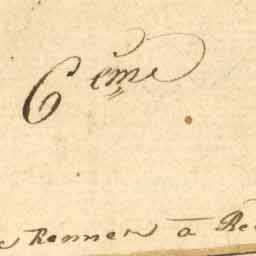 6 eme
Rennes à Re